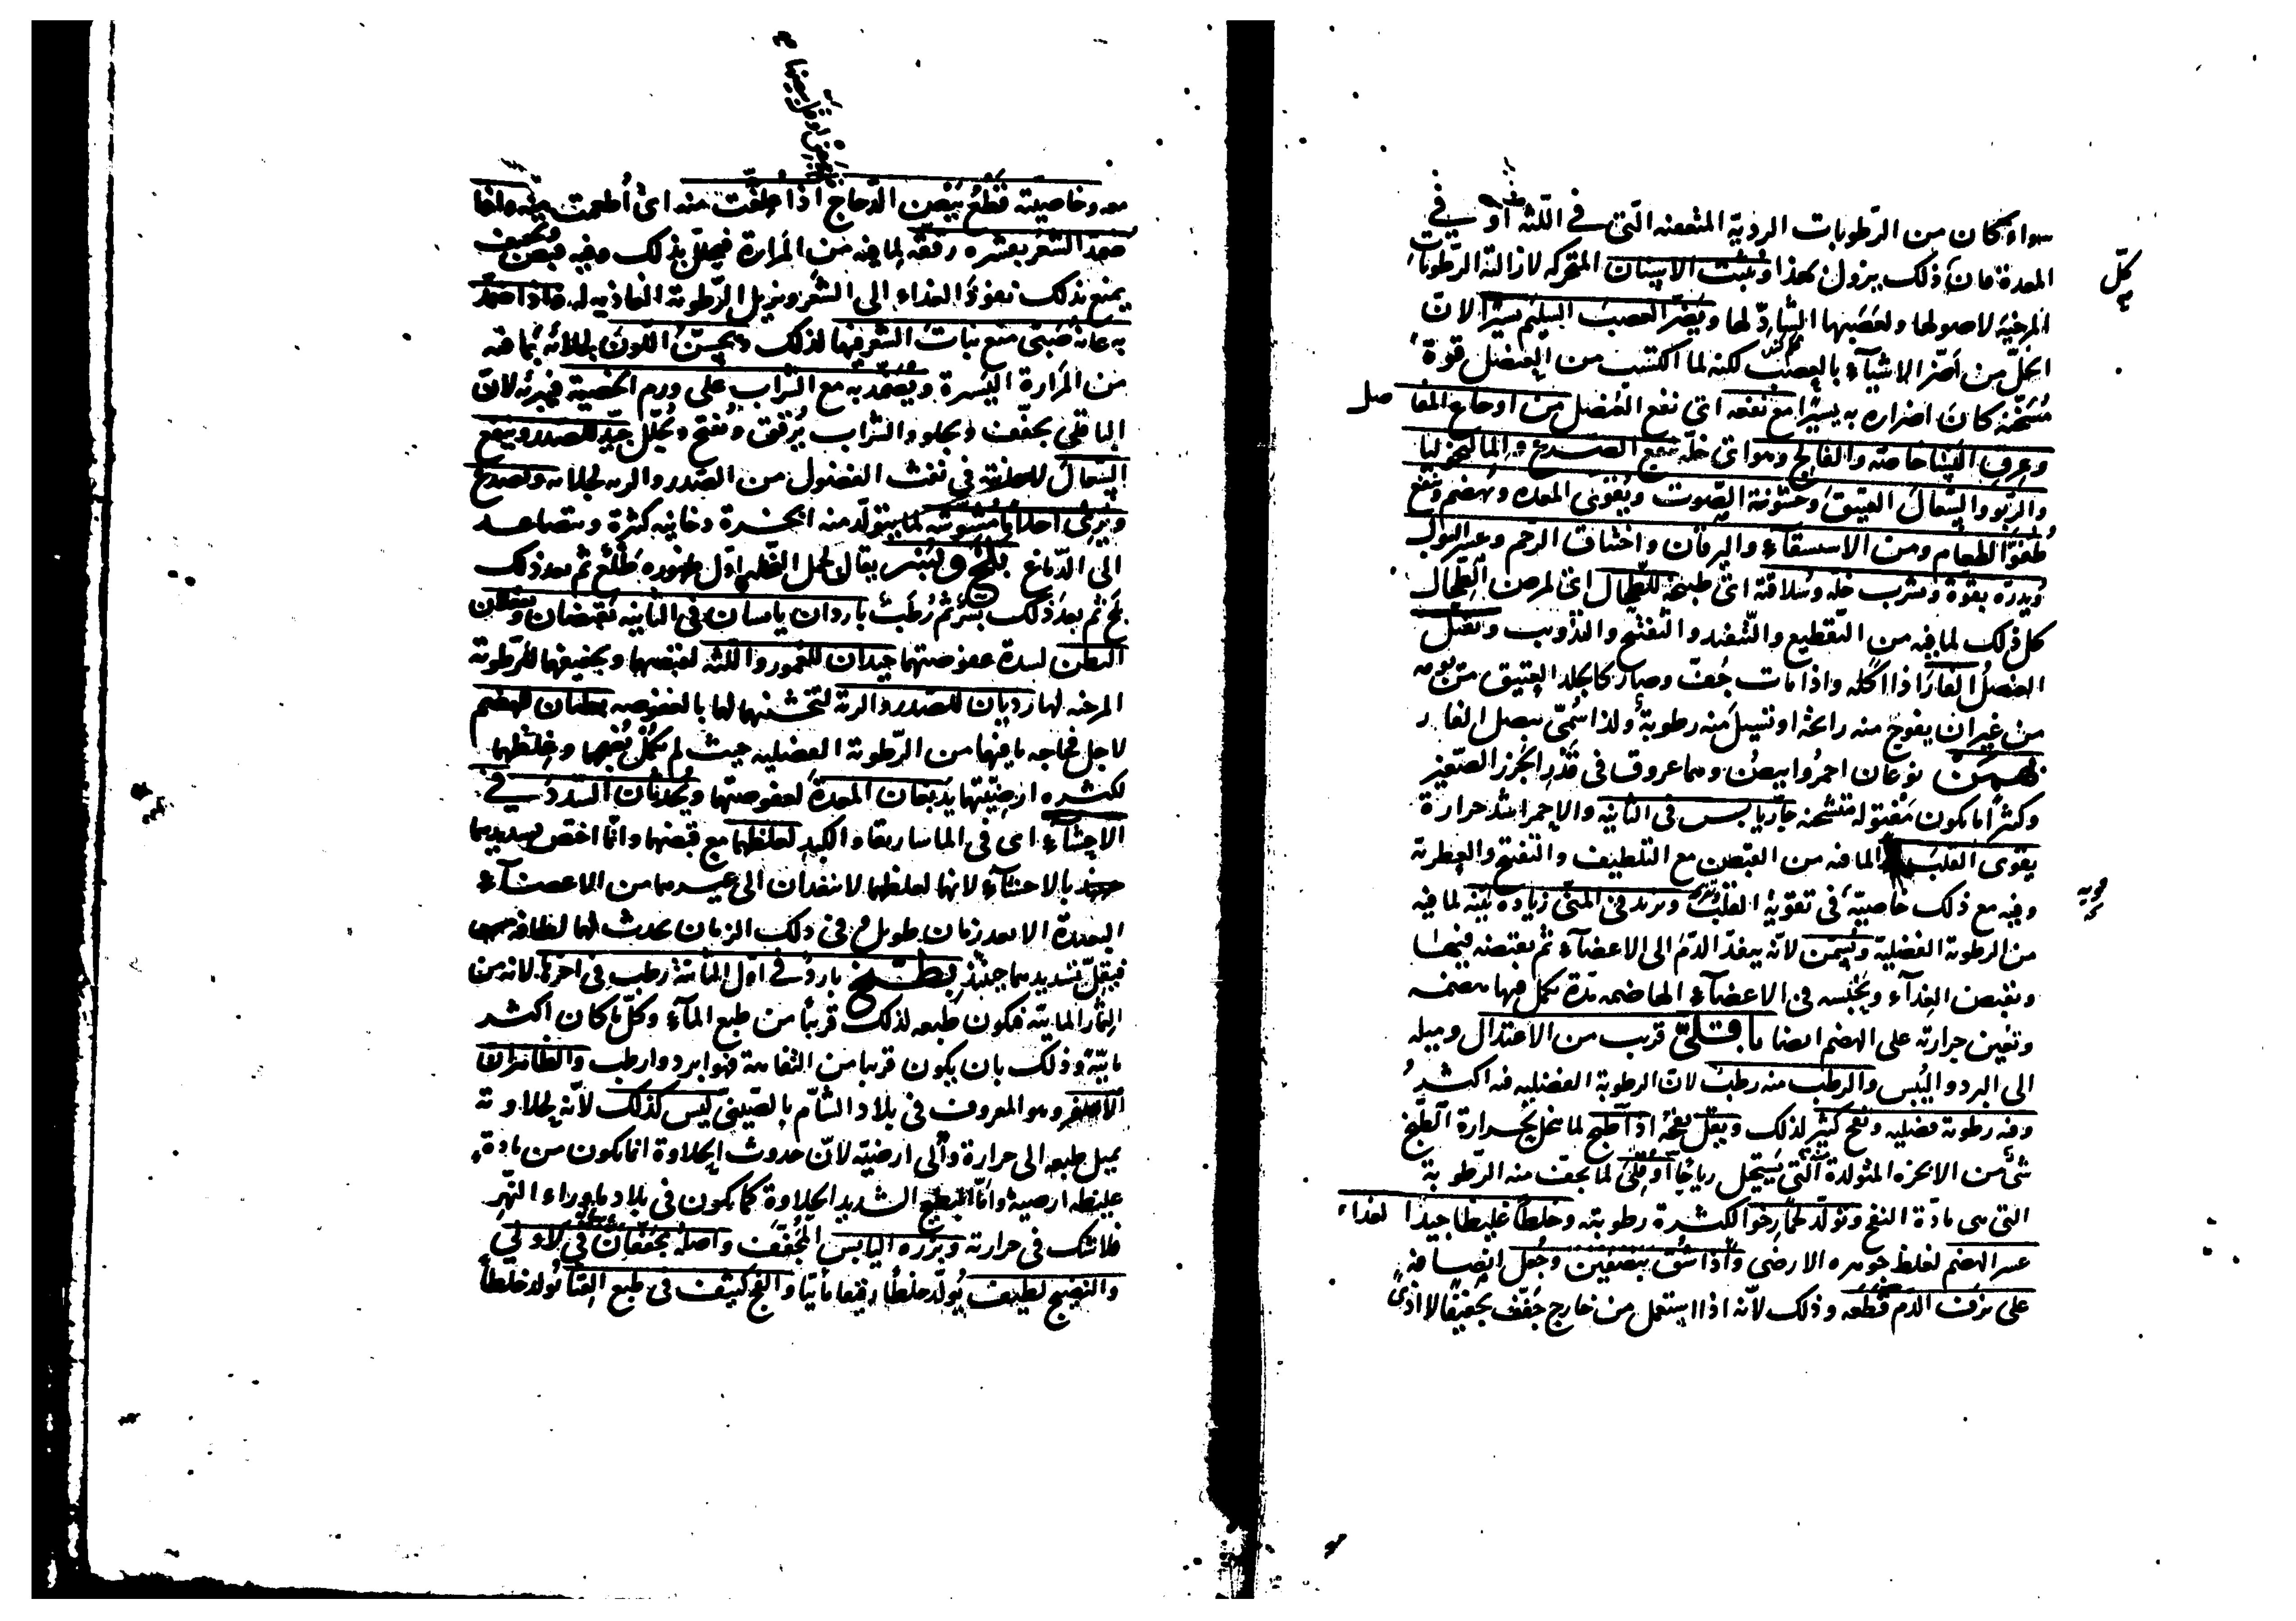 سواء كان من الرطوبات الردية المتعفنه التى فى اللثه او فى
المعدة فان ذلك يزول بهذا ويثبت الاسنان المتحركه لازالته الرطوبات
كلّ
المرخية لاصولها ولعصبها الشادّ لها ويضر العصب السليم يسيرا لانّ
الخلّ من اضرّ الاشياء بالعصب لكنه لما اكتسب من العنصل قوة
مسخّنة كان اضراره به يسيرا مع نفعه اى نفع العنصل من اوجاع المفاصل
وعرق النسا خاصته والفالج وهو اى خلّه ينفع الصدع والمالنخوليا
والربو والسعال العتيق وخشونة الصوت ويقوى المعده ويهضم وينفع
طفوّ الطعام ومن الاستسقاء واليرقان واختناق الرحم وعسر البول
ويدرّه بقوة وشرب خلّه وسلاقته اى طبيخه للطحال اى لمرض الطحال
كل ذلك لما فيه من التقطيع والتنفيذ والتفتيح والتذويب ويقتل
العنصل الفار اذا اكله واذا مات جفّ وصار كالجلد العتيق من يومه
من غير ان يفوح منه رائحة او تسيل منه رطوبة ولذا سمّى بصل الفار
بهمن نوعان احمر وابيض وهما عروق فى قدر الجزر الصغير
وكثيرا ما يكون مفتولة متشنجه حار يابس فى الثانيه والاحمر اشد حرارة
يقوى القلب لما فيه من القبض مع التلطيف والتفتيح والعطرية
وفيه مع ذلك خاصيّة فى تقوية القلب ويزيد فى المنى زياده بيّنه لما فيه
من الرطوبة الفضليّة ويسمن لانّه ينفذ الدّم الى الاعضاء ثم يقبضه فيها
ويقبض الغذاء ويحبسه فى الاعضاء الهاضمه مدّة يكمل فيها هضمه
وتعين حرارته على الهضم ايضا باقلّى قريب من الاعتدال وميله
الى البرد واليبس والرطب منه رطب لانّ الرطوبة الفضليه فيه اكثر
وفيه رطوبة فضليه ونفخ كثير لذلك ويقلّ نفخه اذا طبخ لما يتحلل بحرارة الطبخ
شئ من الابخره المتولدة التى يستحيل رياحا او قلى لما يجفّ منه الرّطوبة
التى هى مادّة النفخ وتولّد لحما رخوا لكثرة رطوبته وخلطا غليظا جيدا لغذاء
عسر الهضم لغلظ جوهره الارضى واذا شق بنصفين وجعل انصافه
على نزف الدم قطعه وذلك لانّه اذا استعمل من خارج جفّف تجفيفا لا اذى
معه وخاصيته قطع بيض الدّجاج اذا علفت منه اى اطعمت منه واذا
ضمد الشعر بقشره رقّقه لما فيه من المرارة فيحلّل بذلك وفيه قبض وتجفيف
يمنع بذلك نفوذ الغذاء الى الشعر ويزيل الرّطوبة الغاذيه له فاذا ضمد
به عانة صبّى منع نبات الشعر فيها لذلك ويحسّن اللّون بجلائه بما فيه
من المرارة اليسرة ويضمّد به مع الشراب على ورم الخصية فيبرئه لانّ
الباقلى يجفّف ويجلو والشراب يرقق ويفتح ويحلّل جيّد للصدر وينفع
السعال لاعانته فى نفث الفضول من الصدر والريه لجلائه ويصدع
ويرى احلاما مشوشة لما يتولّد منه ابخرة دخانيه كثرة ويتصاعد
الى الدّماغ بلح وبسر يقال لحمل النخل اول ظهوره طلع ثم بعد ذلك
بلح ثم بعد ذلك بسر ثم رطب باردان يابسان فى الثانيه يقبضان ويعقلان
البطن لشدة عفوصتهما جيدان للعمور واللثه لقبضهما وتجفيفهما للرّطوبة
المرخيه لها رديان للصدر والرية لتخشينهما لها بالعفوصه بطيئان للهضم
لاجل فجاجه ما فيهما من الرّطوبة الفضليه حيث لم يكمل نضجها وغلظهما
لكثره ارضيّتهما يدبغان المعدة لعفوصتهما ويحدثان السدد فى
الاحشاء اى فى الماساريقا والكبد لغلظهما مع قبضهما وانّما اختص تسديدهما
بالاحشاء لانهما لغلظهما لا ينفذان الى غيرهما من الاعضاء
البعيدة الا بعد زمان طويل وفى ذلك الزمان يحدث لهما لطافة
فيقلّ تسديدهما حينئذ بطيخ بارد فى اول الثانية رطب فى اخرها لانه من
الثمار المائيّه فيكون طبعه لذلك قريبا من طبع الماء وكلّ ما كان اكثر
مائيّة وذلك بان يكون قريبا من التفاهة فهو ابرد وارطب والظاهر ان
الاصفر وهو المعروف فى بلاد الشام بالصينى ليس كذلك لانّه لحلاوته
يميل طبعه الى حرارة والى ارضيّه لانّ حدوث الحلاوة انما يكون من مادة
غليظه ارضية وامّا البطيخ الشديد الحلاوة كما يكون فى بلاد ما وراء النهر
فلا شك فى حرارته وبزره اليابس المجفّف واصله مجفّفان فى الاولى
والنضيج لطيف يولّد خلطا رقيقا مائيا والفج كثيف فى طبع القثا يولد خلطا